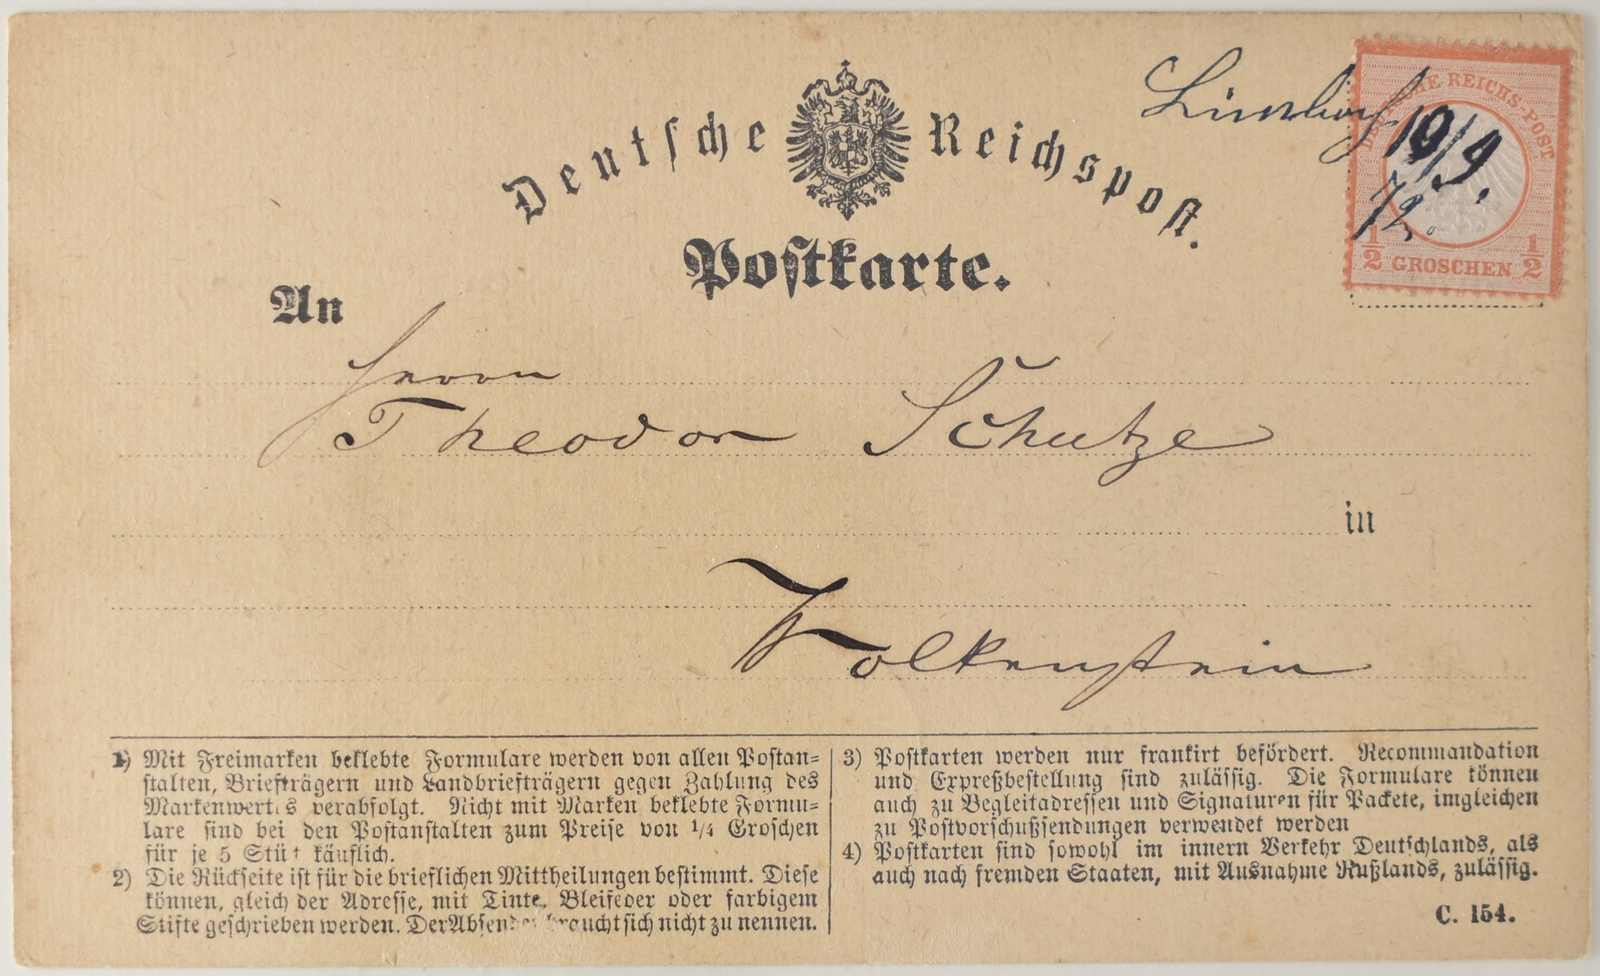 Deutsche Reichspost.
Postkarte.
DEUTSCHE REICHS-POST
1/2 GROSCHEN 1/2
19/9.
72.
An
Herrn
Theodor Schutze
in
Wolkenstein
1) Mit Freimarken beklebte Formulare werden von allen Postan-
stalten, Briefträgern und Landbriefträgern gegen Zahlung des
Markenwertes verabfolgt. Nicht mit Marken beklebte Formu-
lare sind bei den Postanstalten zum Preise von 1/4 Groschen
für je 5 Stück käuflich.
2) Die Rückseite ist für die brieflichen Mittheilungen bestimmt. Diese
können, gleich der Adresse, mit Tinte, Bleifeder oder farbigem
Stifte geschrieben werden. Der Absender braucht sich nicht zu nennen.
3) Postkarten werden nur frankirt befördert. Recommandation
und Expreßbestellung sind zulässig. Die Formulare können
auch zu Begleitadressen und Signaturen für Packete, imgleichen
zu Postvorschußsendungen verwendet werden
4) Postkarten sind sowohl im innern Verkehr Deutschlands, als
auch nach fremden Staaten, mit Ausnahme Rußlands, zulässig.
C. 154.